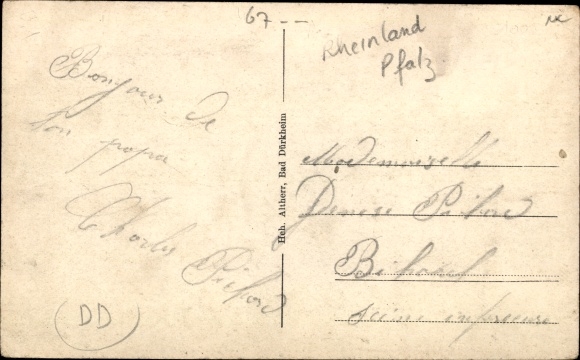 67--
Rheinland
Pfalz
Bonjour de
ton papa
Charles
Hch. Altherr, Bad Dürkheim
Mademoiselle
Denise
seine inferieure
DD